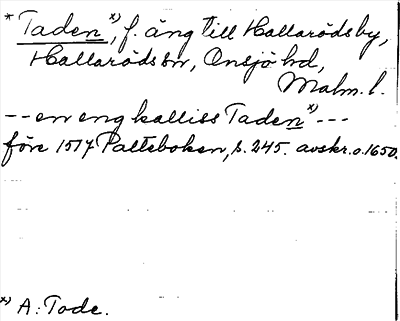 * Taden *), f. äng till Hallarödsby,
Hallaröds sn, Onsjö hd,
Malm. l.
-- en eng kalliss Taden *) ---
före 1517 Palteboken, s. 245. avskr. o. 1650.
*) A: Tode.